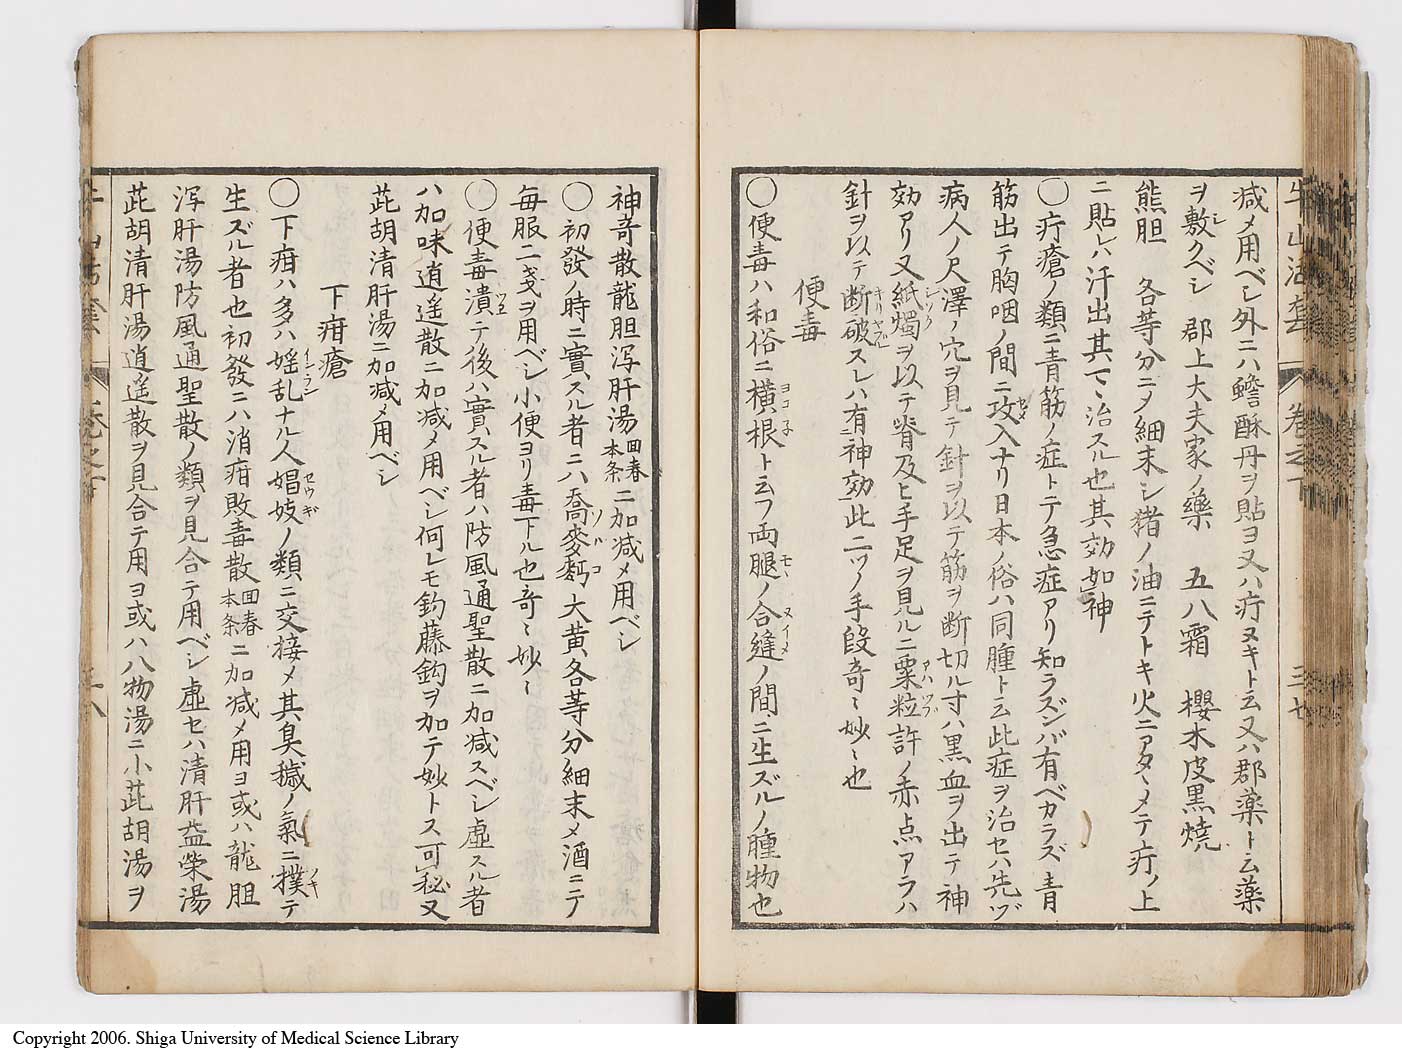 牛山活套 卷之下 三七
減メ用ベシ外ニハ蟾酥丹ヲ貼ヨ又ハ疔ヌキト云又ハ郡薬ト云薬
ヲ敷クベシ 郡上大夫家ノ藥 五八霜 櫻木皮黒燒
熊胆 各等分ニ〆細末シ猪ノ油ニテトキ火ニアタヽメテ疔ノ上
ニ貼レハ汗出其マヽ治スル也其効如神
〇疔瘡ノ類ニ青筋ノ症トテ急症アリ知ラズンバ有ベカラズ青
筋出テ胸咽ノ間ニ攻入ナリ日本ノ俗ハ同腫ト云此症ヲ治セハ先ヅ
病人ノ尺澤ノ穴ヲ見テ針ヲ以テ筋ヲ断切ル寸ハ黒血ヲ出テ神
効アリ又紙燭ヲ以テ脊及ヒ手足ヲ見ルニ粟粒許ノ赤点アラハ
針ヲ以テ断破スレハ有神効此二ツノ手段奇〻妙〻也
便毒
〇便毒ハ和俗ニ横根ト云フ両腿ノ合縫ノ間ニ生ズルノ腫物也
神奇散龍胆泻肝湯回春本条ニ加減メ用ベシ
〇初發ノ時ニ實スル者ニハ喬麥麪大黄各等分細末メ酒ニテ
毎服二戔ヲ用ベシ小便ヨリ毒下ル也奇〻妙〻
〇便毒潰テ後ハ實スル者ハ防風通聖散ニ加減スベシ虚スル者
ハ加味逍遥散ニ加減メ用ベシ何レモ釣藤鈎ヲ加テ妙トス可秘又
茈胡清肝湯ニ加減メ用ベシ
下疳瘡
〇下疳ハ多ハ婬乱ナル人娼妓ノ類ニ交接メ其臭穢ノ氣ニ撲テ
生ズル者也初發ニハ消疳敗毒散回春本条ニ加減メ用ヨ或ハ龍胆
泻肝湯防風通聖散ノ類ヲ見合テ用ベシ虚セハ清肝益榮湯
茈胡清肝湯逍遥散ヲ見合テ用ヨ或ハ八物湯ニ小茈胡湯ヲ
Copyright 2006. Shiga University of Medical Science Library